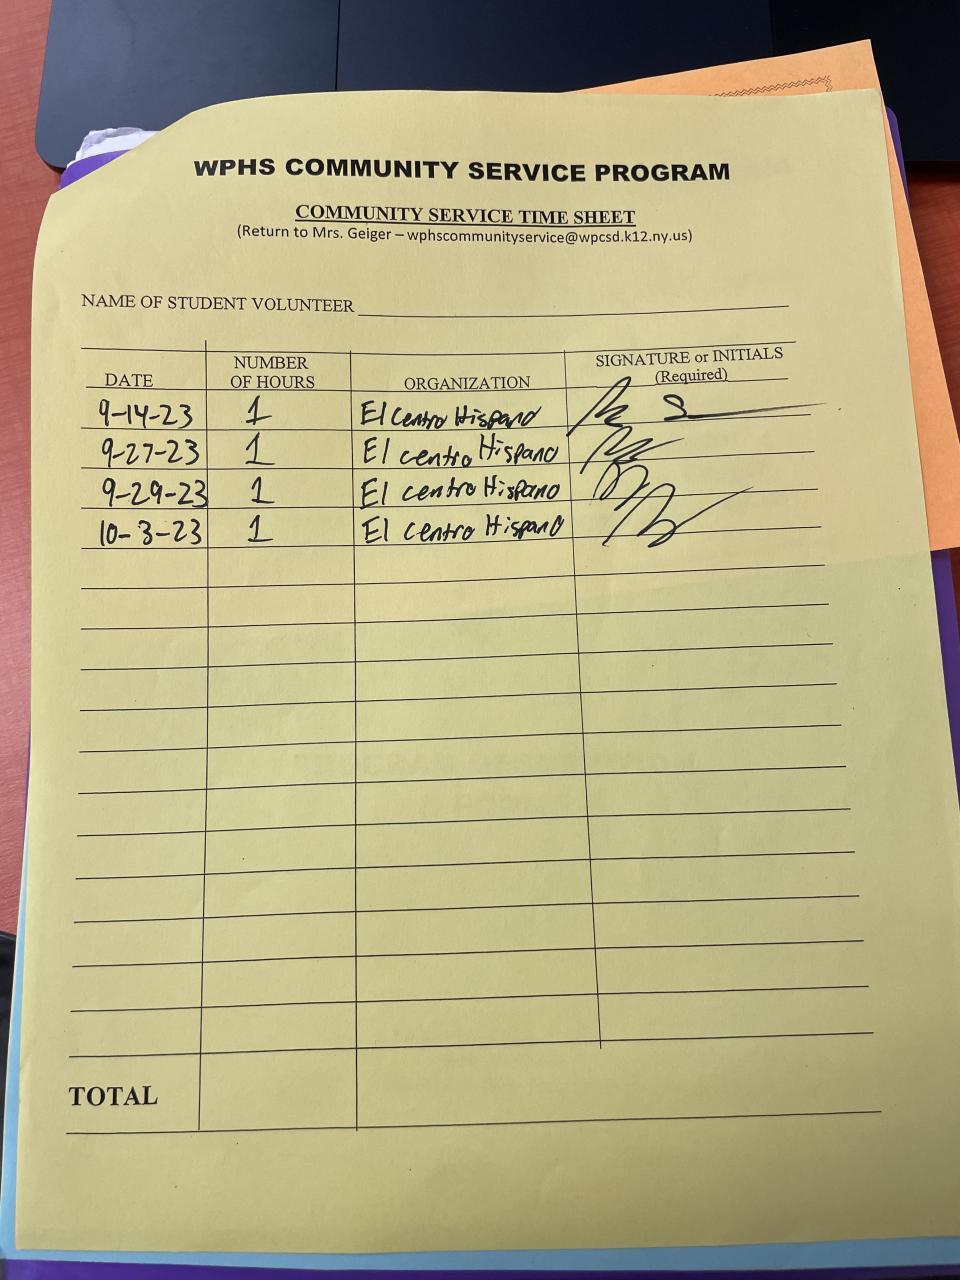 WPHS COMMUNITY SERVICE PROGRAM
COMMUNITY SERVICE TIME SHEET
(Return to Mrs. Geiger – wphscommunityservice@wpcsd.k12.ny.us)
NAME OF STUDENT VOLUNTEER
DATE NUMBER OF HOURS ORGANIZATION SIGNATURE or INITIALS (Required)
9-14-23 1 El Centro Hispano
9-27-23 1 El centro Hispano
9-29-23 1 El centro Hispano
10-3-23 1 El centro Hispano
TOTAL